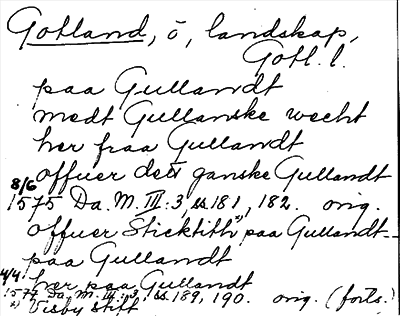 Gotland, ö, landskap,
Gotl. l.
paa Gullandt
medt Gullanske wecht
her fraa Gullandt
offuer dett ganske Gullandt
8/6
1575 Da. M. III:3, ss. 181, 182. orig.
offuer Sticktith¹⁾ paa Gullandt -
paa Gullandt
4/4 her paa Gullandt
1577 Da. M. III:3, ss. 189, 190. orig. (forts.)
¹⁾ Visby stift